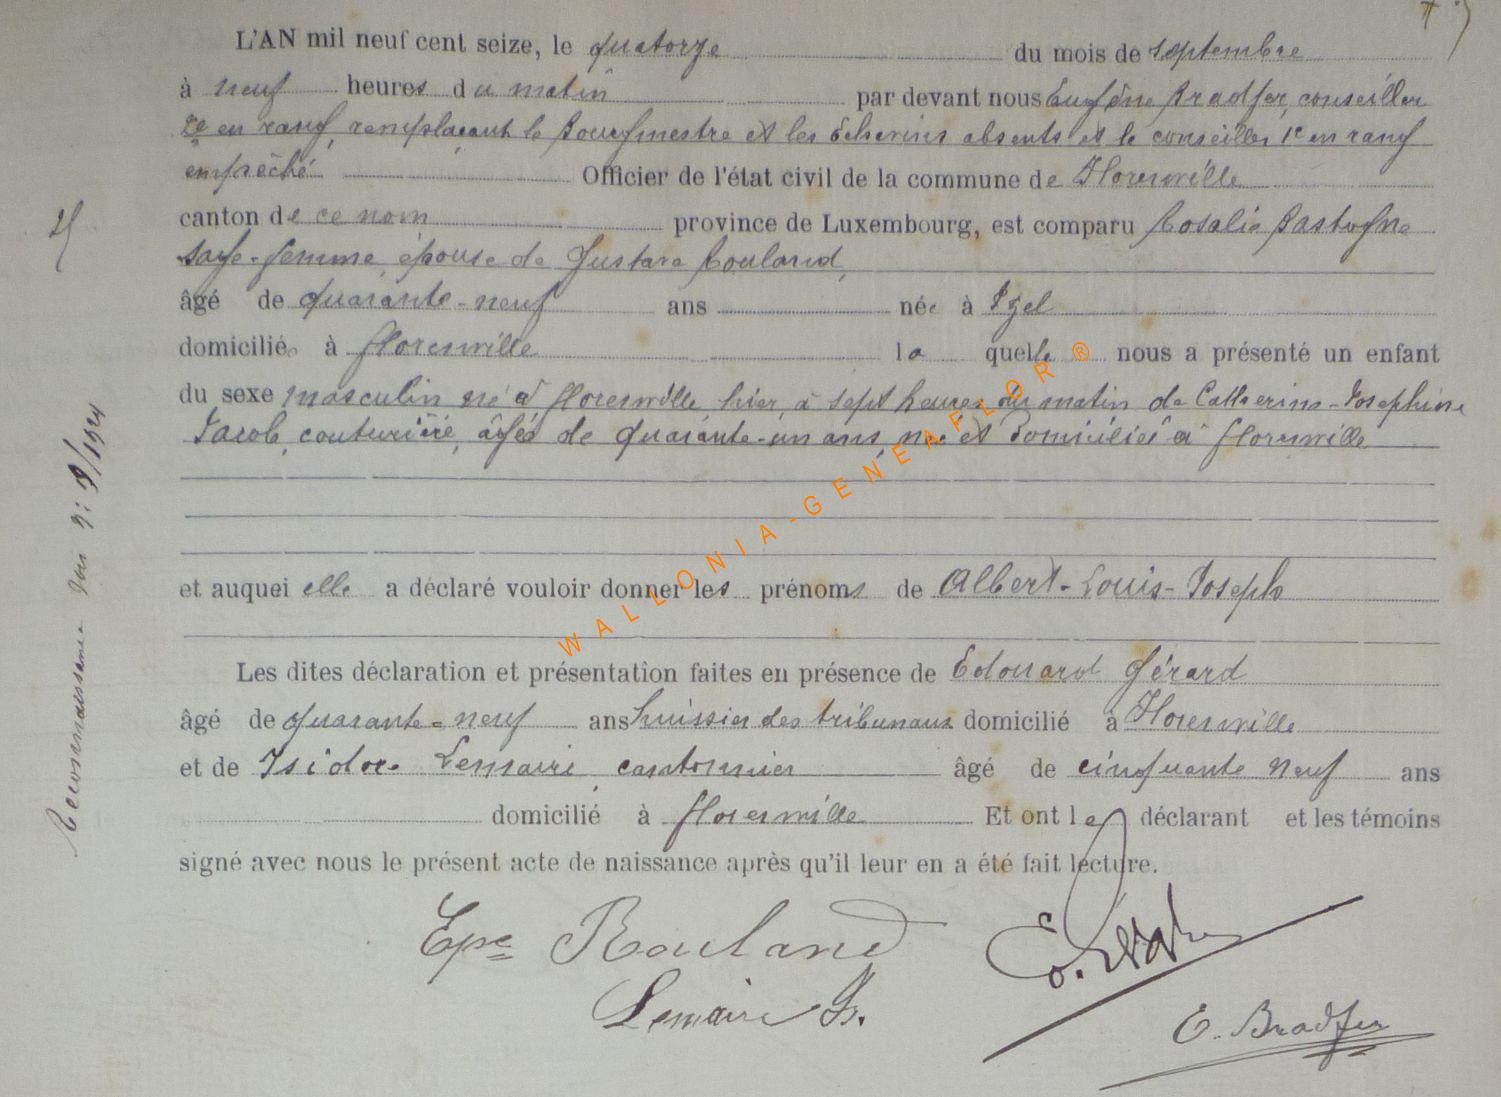 L'AN mil neuf cent seize, le quatorze du mois de septembre
à neuf heures du matin par devant nous Eugène Bradfer, conseiller
2e en rang, remplaçant le Bourgmestre et les Echevins absents et le conseiller 1e en rang
empêché Officier de l'état civil de la commune de Florenville
canton de ce nom province de Luxembourg, est comparu Rosalie Bastogne
sage-femme, épouse de Gustave Rouland,
âgé de quarante-neuf ans née à Izel
domiciliée à Florenville laquelle nous a présenté un enfant
du sexe masculin né à Florenville, hier, à sept heures du matin de Catherine-Josephine
Jacob, couturière, âgée de quarante-un ans, née et domiciliée à Florenville
et auquel elle a déclaré vouloir donner les prénoms de Albert-Louis-Joseph
Les dites déclaration et présentation faites en présence de Edouard Gérard
âgé de quarante-neuf ans huissier des tribunaux domicilié à Florenville
et de Isidore Lemaire, cantonnier âgé de cinquante neuf ans
domicilié à Florenville Et ont les déclarant et les témoins
signé avec nous le présent acte de naissance après qu'il leur en a été fait lecture.
Epse Rouland
Lemaire Is.
E. Bradfer
Reconnaissance 9/1924
WALLONIA-GENEAFLOR®